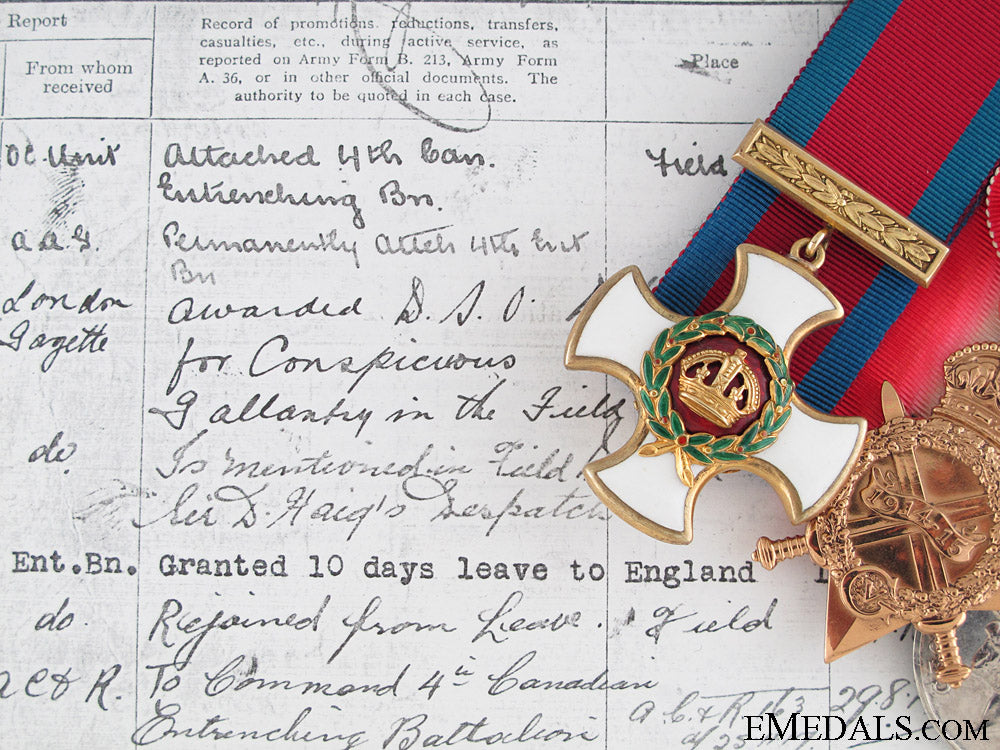 Report
Record of promotions, reductions, transfers,
casualties, etc., during active service, as
reported on Army Form B. 213, Army Form
A. 36, or in other official documents. The
authority to be quoted in each case.
From whom
received
Place
OC. Unit
Attached 4th Can.
Field
Entrenching Bn.
a.a.g.
Permanently attch 4th Ent
Bn
London
Gazette
awarded D. S. O.
for Conspicuous
Gallantry in the Field
do.
Is mentioned in Field
Sir D. Haig's Despatch
Ent.Bn. Granted 10 days leave to England
do.
Rejoined from Leave. Field
R. To Command 4th Canadian
A.C.& R 163 29.8.
Entrenching Battalion
1914-15
EMEDALS.COM